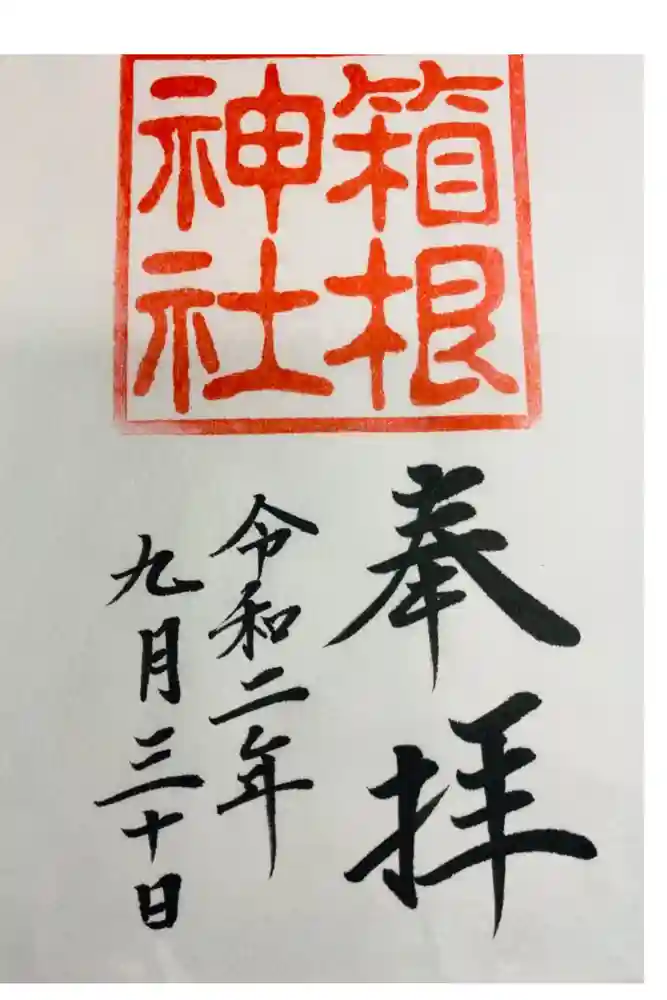 箱根
神社
奉拝
令和二年
九月三十日